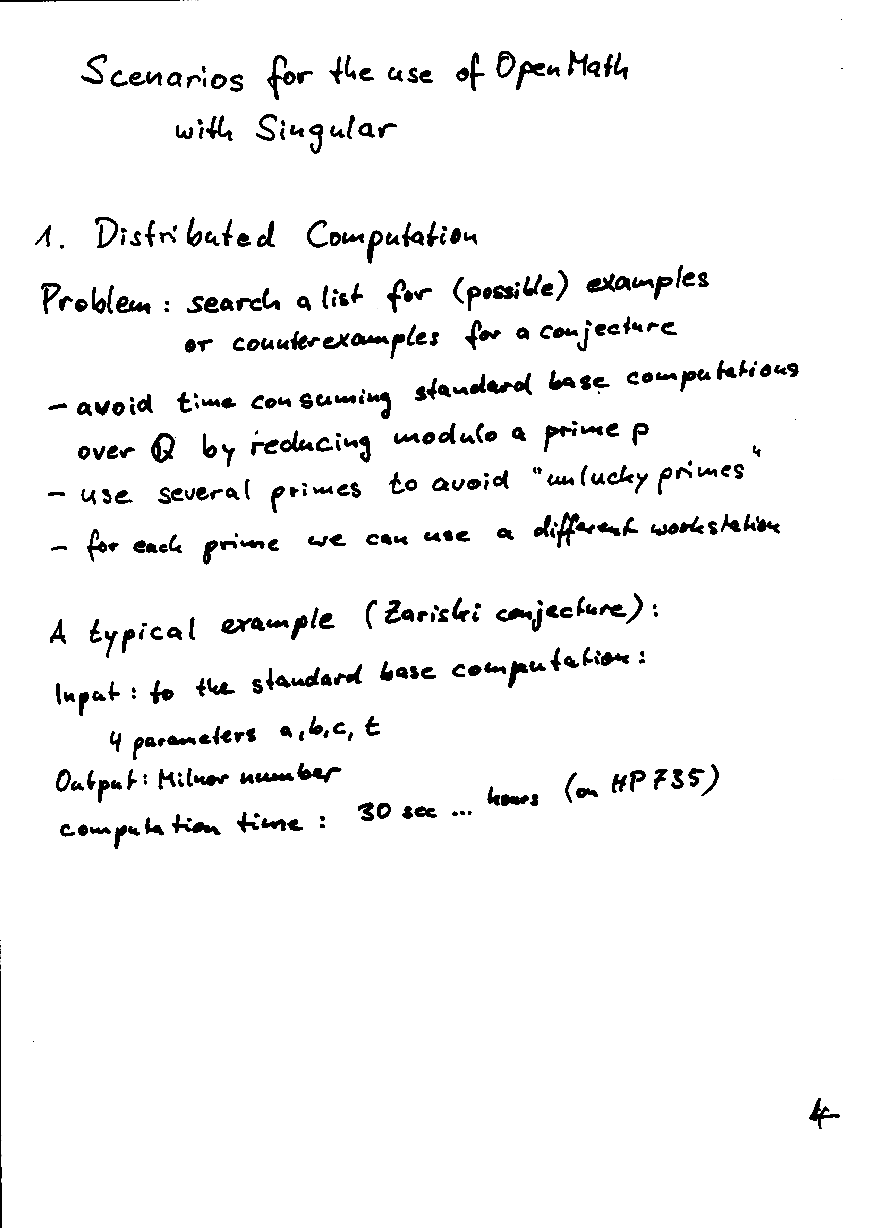 Scenarios for the use of OpenMath
with Singular
1. Distributed Computation
Problem : search a list for (possible) examples
or counterexamples for a conjecture
- avoid time consuming standard base computations
over Q by reducing modulo a prime p
- use several primes to avoid "unlucky primes"
- for each prime we can use a different workstation
A typical example (Zariski conjecture) :
Input : to the standard base computation :
4 parameters a, b, c, t
Output : Milnor number
computation time : 30 sec ... hours (on HP 735)
4